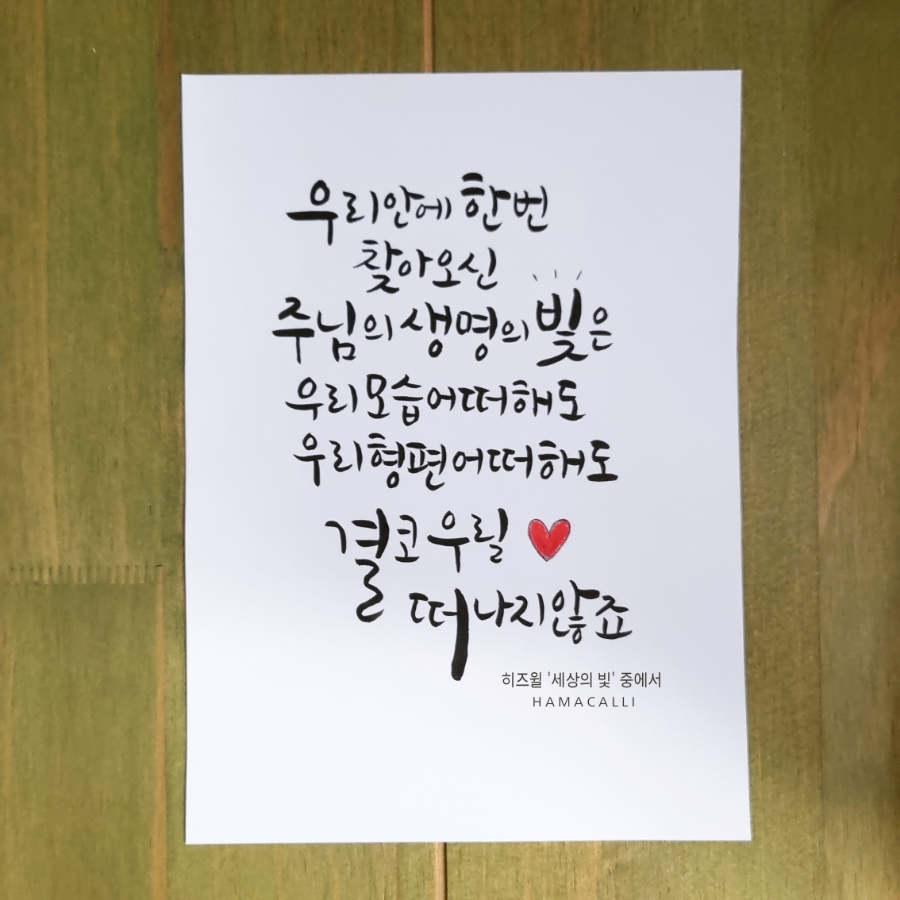 우리안에 한번
찾아오신
주님의 생명의 빛은
우리모습어떠해도
우리형편어떠해도
결코 우릴
떠나지않죠
히즈윌 '세상의 빛' 중에서
HAMACALLI